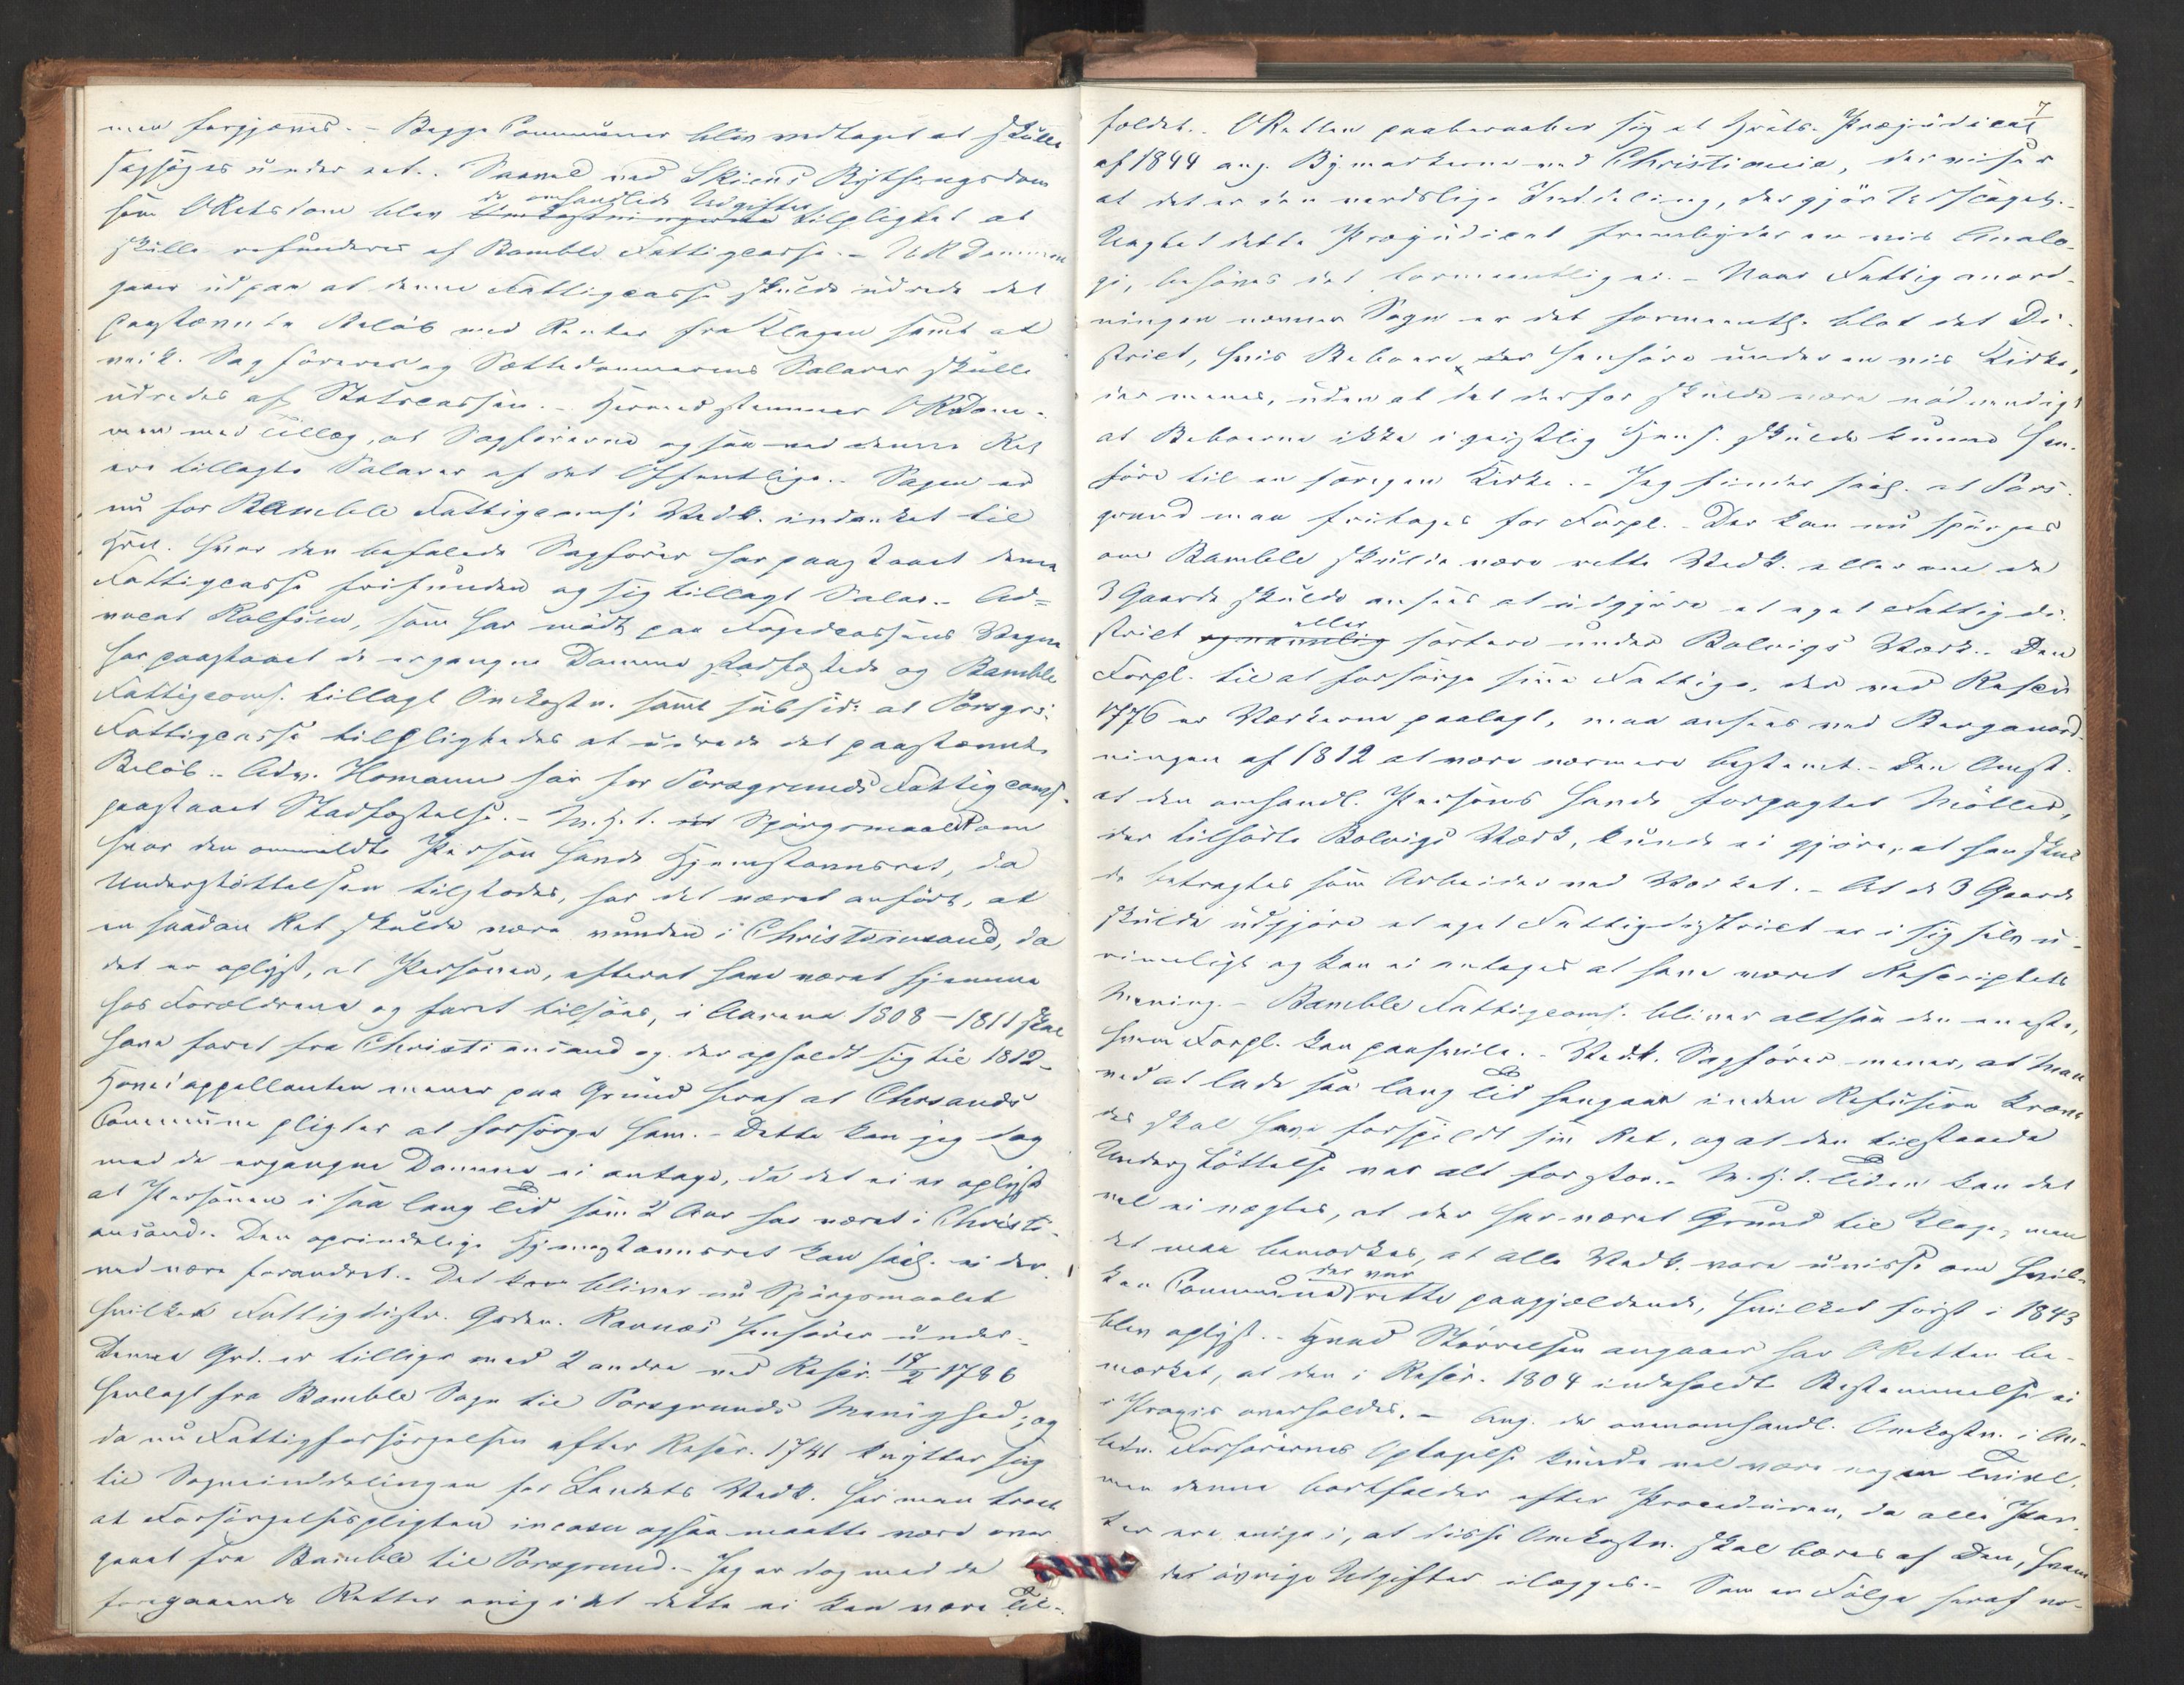 men forgjæves. - Begge Communer blev modtaget at skulle
sagsøges under eet. - Saavel ved Skiens Bytingsdom
de omhandlede Udgifter
som ORetsdom blev Omkostningerne tilpligtet at
skulle refunderes af Bamble Fattigcasse. - URDommen
gaaer ud paa at denne Fattigcasse skulde udrede det
paastævnte Beløb med Renter fra Klagen samt at
Sagførerer og Sættedommerens Salarer skulle
udredes af Statscassen. - Hermed stemmer ORDom-
men med Tillæg, at Sagførerne ogsaa ved denne Ret
ere tillagte Salarer af det Offentlige. - Sagen er
nu for Bamble Fattigcoms: Vedk. indanket til
HRet. hvor den befalede Sagfører har paastaaet denne
Fattigcasse frifunden og sig tillagt Salar. - Ad=
vocat Rolfsen, som har mødt paa Fogedcassens Vegne
har paastaaet de ergangne Domme stadfæstede og Bamble
Fattigcoms. tillagt Omkostn. samt subsid: at Porsgr:
Fattigcasse tilpligtedes at udrede det paastævnte
Beløb. - Adv. Homann har for Porsgrunds Fattigcoms.
paastaaet Stadfæstelse. - M. H. t. Spørgsmaalet om
hvor den ommeldte Person havde Hjemstavnsret, da
Understøttelsen tilstodes, har det været anført, at
en saadan Ret skulde være vunden i Christiansand, da
det er oplyst, at Personen, efterat have været hjemme
hos Forældrene og faret tilsøes, i Aarene 1808-1811 skal
have faret fra Christiansand og der opholdt sig til 1812. -
Hovedappellanten mener paa Grund heraf at Chrsands
Commune pligter at forsørge ham. - Dette kan jeg dog
med de ergangne Domme ei antage, da det ei er oplyst
at Personen i saa lang Tid som 2 Aar har været i Christi-
ansand. Den oprindelige Hjemstavnsret kan saal. ei der-
ved være forandret. - Det bliver nu Spørgsmaalet
hvilket Fattigdistr. Grden. Ravnæs henhører under. -
Denne Grd. er tillige med 2 andre ved Rescr. 17/2 1786
henlagt fra Bamble Sogn til Porsgrunds Menighed; og
da nu Fattigforsørgelsen efter Rescr. 1741 knytter sig
til Sogneinddelingen for Landets Vedk. har man troet
at Forsørgelsespligten in casu ogsaa maatte være over-
gaaet fra Bamble til Porsgrund. - Jeg er dog med de
foregaaende Retter enig i at dette ei kan være Til-
7
foldet. - ORetten paaberaaber sig et Hrets-Præjudicat
af 1844 ang. Bymarkerne ved Christiania, der viser
at det er den verdslige Inddeling, der gjør Udslaget. -
Uagtet dette Præjudicat frembyder en vis Analo-
gi, behøves det formeentlig ei. - Naar Fattiganord-
ningen nævner Sogn er det formeentl. blot det Di-
strict, hvis Beboere henhøre under en vis Kirke,
der menes, uden at det derfor skulde være nødvendigt
at Beboerne ikke i geistlig Hens. skulde kunne hen-
høre til en særegen Kirke. - Jeg finder saal. at Pors-
grund maa fritages for Forpl. - Der kan nu spørges
om Bamble skulde være rette Vedk. eller om de
3 Gaarde skulde ansees at udgjøre et eget Fattigdi-
eller
strict og nemlig sortere under Bolvigs Værk. - Den
Forpl. til at forsørge sine Fattige, der ved Rescr.
1776 er Værkerne paalagt, maa ansees ved Berganord-
ningen af 1812 at være nærmere bestemt. - Den Omst.
at den omhandl. Persons havde forpagtet Møller,
der tilhørte Bolvigs Værk, kunde ei gjøre, at han skul-
de betragtes som Arbeider ved Værket. - At de 3 Gaarde
skulde udgjøre et eget Fattigdistrict er i sig selv u-
rimeligt og kan ei antages at have været Rescriptets
Mening. - Bamble Fattigcoms. bliver altsaa den eneste,
hvem Forpl. kan paahvile. - Vedk. Sagfører mener, at man
ved at lade saa lang Tid hengaae inden Refusion kræve-
des skal have forspildt sin Ret, og at den tilstaaede
Understøttelse var alt for stor. - M. H. t. Tiden kan det
vel ei nægtes, at der har været Grund til Klage, men
det maa bemærkes, at alle Vedk. vare uvisse om hvil-
der var
ken Commune rette paagjældende, hvilket først i 1843
blev oplyst. - Hvad Størrelsen angaaer har ORetten be-
mærket, at den i Rescr. 1804 indeholdt Bestemmelse ei
i Praxis overholdes. - Ang. de ovenomhandl. Omkostn. i An-
ledn. Forhørernes Optagelse kunde vel være nogen Tvivl,
men denne bortfalder efter Proceduren, da alle Par-
ter ere enige i, at disse Omkostn. skal bæres af Den, hvem
det øvrige Udgifter ilægges. - Som en Følge heraf ve-